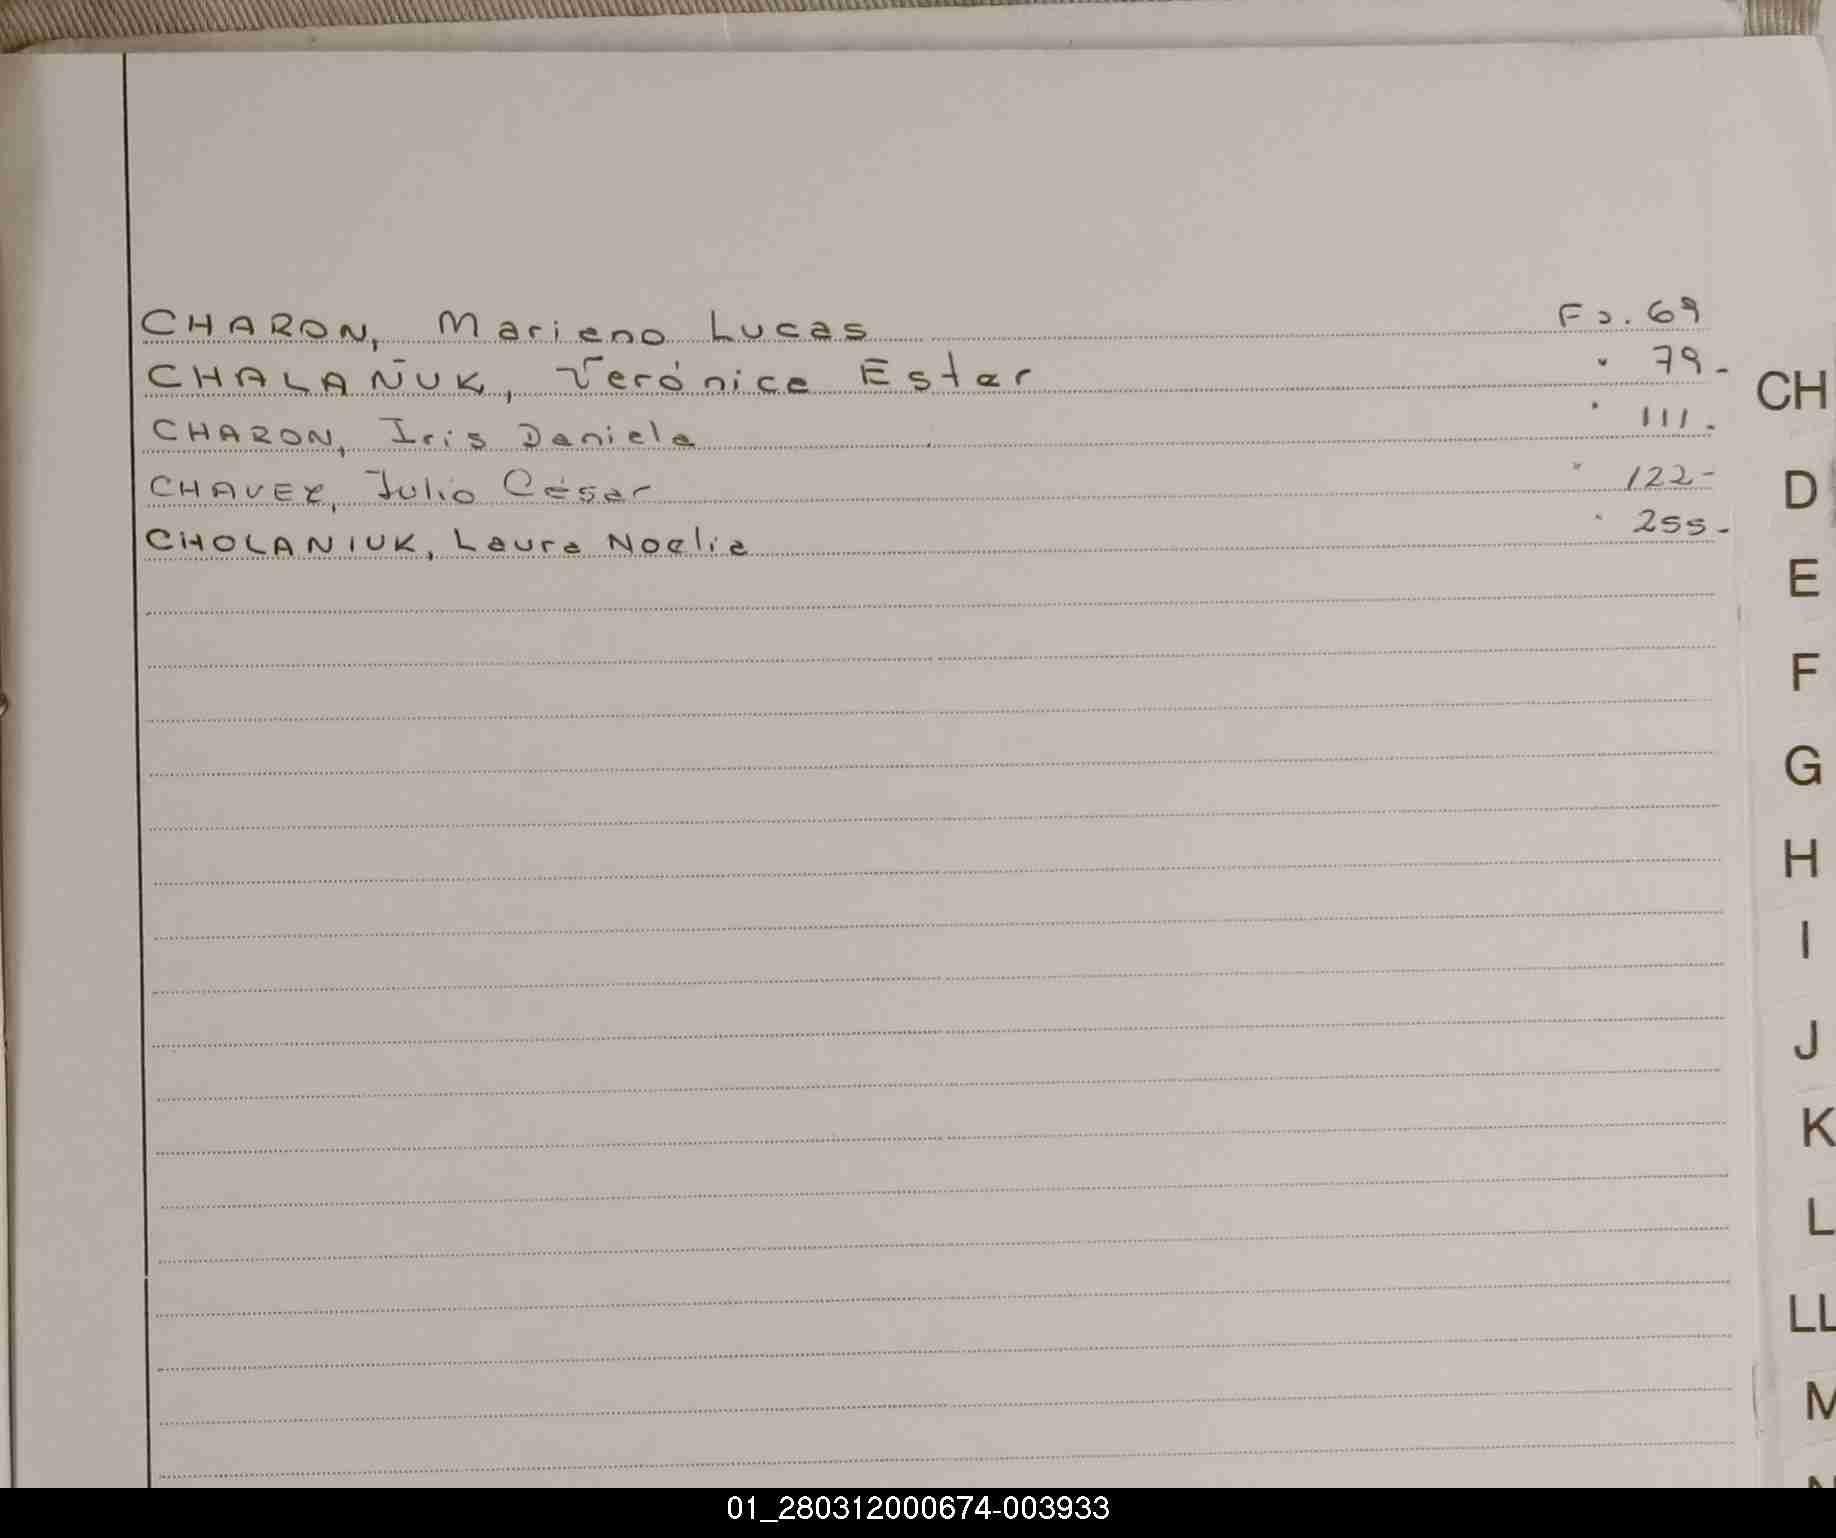 CHARON, Mariano Lucas Fo. 69
CHALAÑUK, Verónica Ester " 79-
CHARON, Iris Daniela " 111-
CHAVEZ, Julio César " 122-
CHOLANIUK, Laura Noelia " 255-
CH
D
E
F
G
H
I
J
K
L
LL
M
01_280312000674-003933